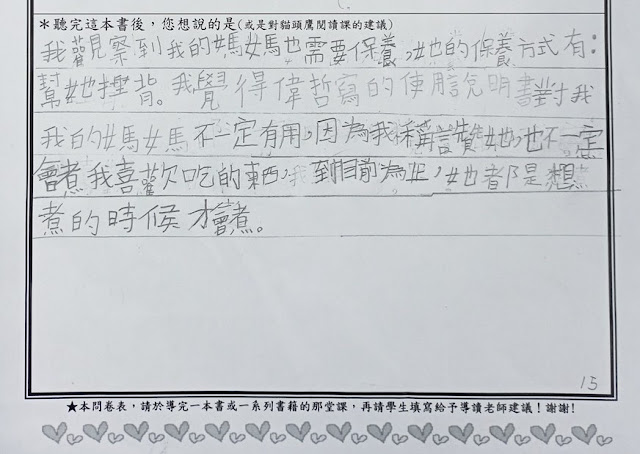 ＊聽完這本書後，您想說的是(或是對貓頭鷹閱讀課的建議)
我觀察到我的媽媽也需要保養，她的保養方式有：
幫她捶背。我覺得偉哲寫的使用說明書對我
我的媽媽不一定有用，因為我稱讚她，也不一定
會煮我喜歡吃的東西，到目前為止，她都是想
煮的時候才會煮。
15
★本問卷表，請於導完一本書或一系列書籍的那堂課，再請學生填寫給予導讀老師建議！謝謝!